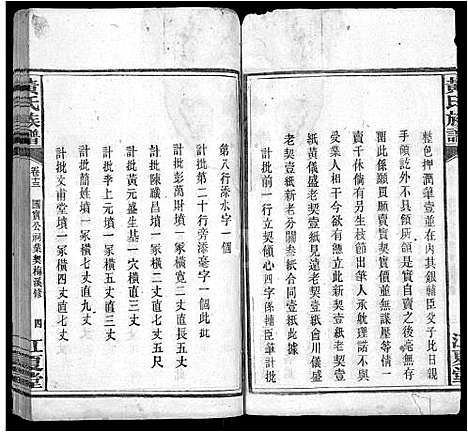 黃氏族譜
整色押潤筆壹並在內其銀椿臣父子比日親
手領訖外不具領所領是實自賣之後毫無存
圖此係願買願賣實契實價並無謀壓等情一
賣千休倘有另生枝節出筆人承躭理落不與
受業人相干今欲有憑立此新契壹紙老契壹
紙黃儀盛老契壹紙見遠老契壹紙會川儀盛
老契壹紙新老分關叁紙合同壹紙此據
計批前三行立契傾心四字係椿臣筆計批
第八行添水字一個
計批第二十行旁添毫字一個此批
計批彭萬財墳一冢橫寬二丈直長五丈
計批陳職昌墳一冢橫七丈直五尺
計批黃元盛生基一穴橫直三丈
計批季上元墳一冢橫五丈直三丈
計批蕳姓墳一冢橫七丈直九丈
計批文甫堂墳一冢橫四丈直七丈
黃氏族譜
卷十三
國賓公祠業契梅溪修
四
江夏堂